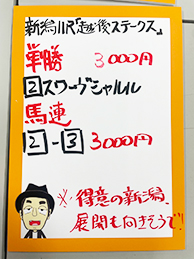 新潟11R「越後ステークス」
単勝 3000円
2 スワーヴシャルル
馬連
2-3 3000円
※得意の新潟、
展開も向きそうで!